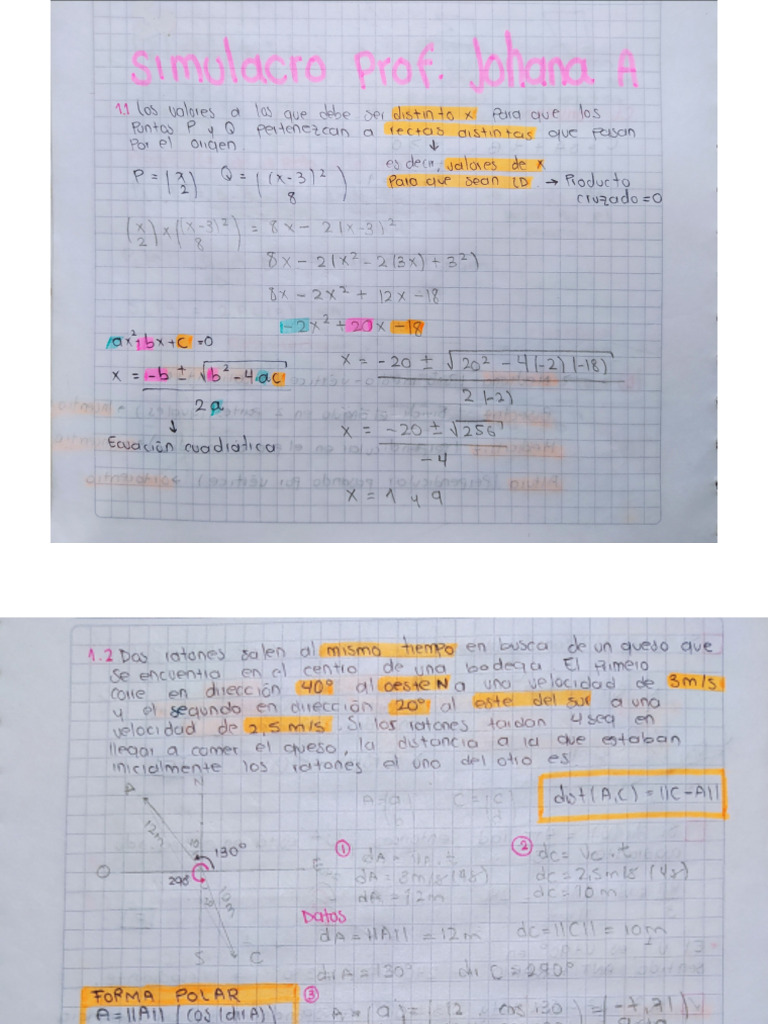 Simulacro Prof. Johana A
1.1 Los valores a los que debe ser distinto x para que los
Puntos P y Q pertenezcan a rectas distintas que pasan
Por el origen
↓
es decir, valores de x
Para que sean LD → Producto
cruzado = 0
P = (x 2) Q = ((x-3)² 8)
(x 2) x ((x-3)² 8) = 8x - 2(x-3)²
8x - 2(x² - 2(3x) + 3²)
8x - 2x² + 12x - 18
-2x² + 20x - 18
ax²+bx+c=0
x = -b ± √b² - 4ac
2a
↓
Ecuación cuadrática
x = -20 ± √20² - 4(-2)(-18)
2(-2)
x = -20 ± √256
-4
x = 1 y 9
1.2 Dos ratones salen al mismo tiempo en busca de un queso que
se encuentra en el centro de una bodega El primero
corre en dirección 40° al oeste N a una velocidad de 3m/s
y el segundo en dirección 20° al este del sur a una
velocidad de 2,5 m/s. Si los ratones tardan 4 seg en
llegar a comer el queso, la distancia a la que estaban
inicialmente los ratones el uno del otro es.
dist(A,C) = ||C-A||
A
N
12m
130°
O
E
290
10m
S
C
①
dA = 3m/s (4s)
dA = 12m
②
dc = Vc · t
dc = 2,5m/s (4s)
dc = 10 m
Datos
dA = ||A|| = 12m dc = ||C|| = 10m
dir A = 130° dir C = 290°
FORMA POLAR
A = ||A|| (cos(dirA)
③
A = (a) = (12 cos 130) = (-7,71)